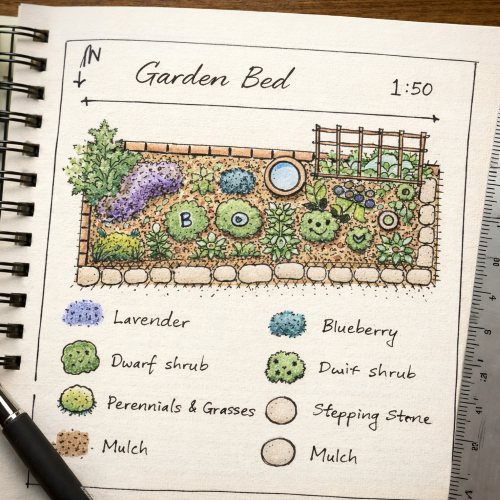 N
Garden Bed
1:50
B
Lavender
Blueberry
Dwarf shrub
Dwit shrub
Perennials & Grasses
Stepping Stone
Mulch
Mulch